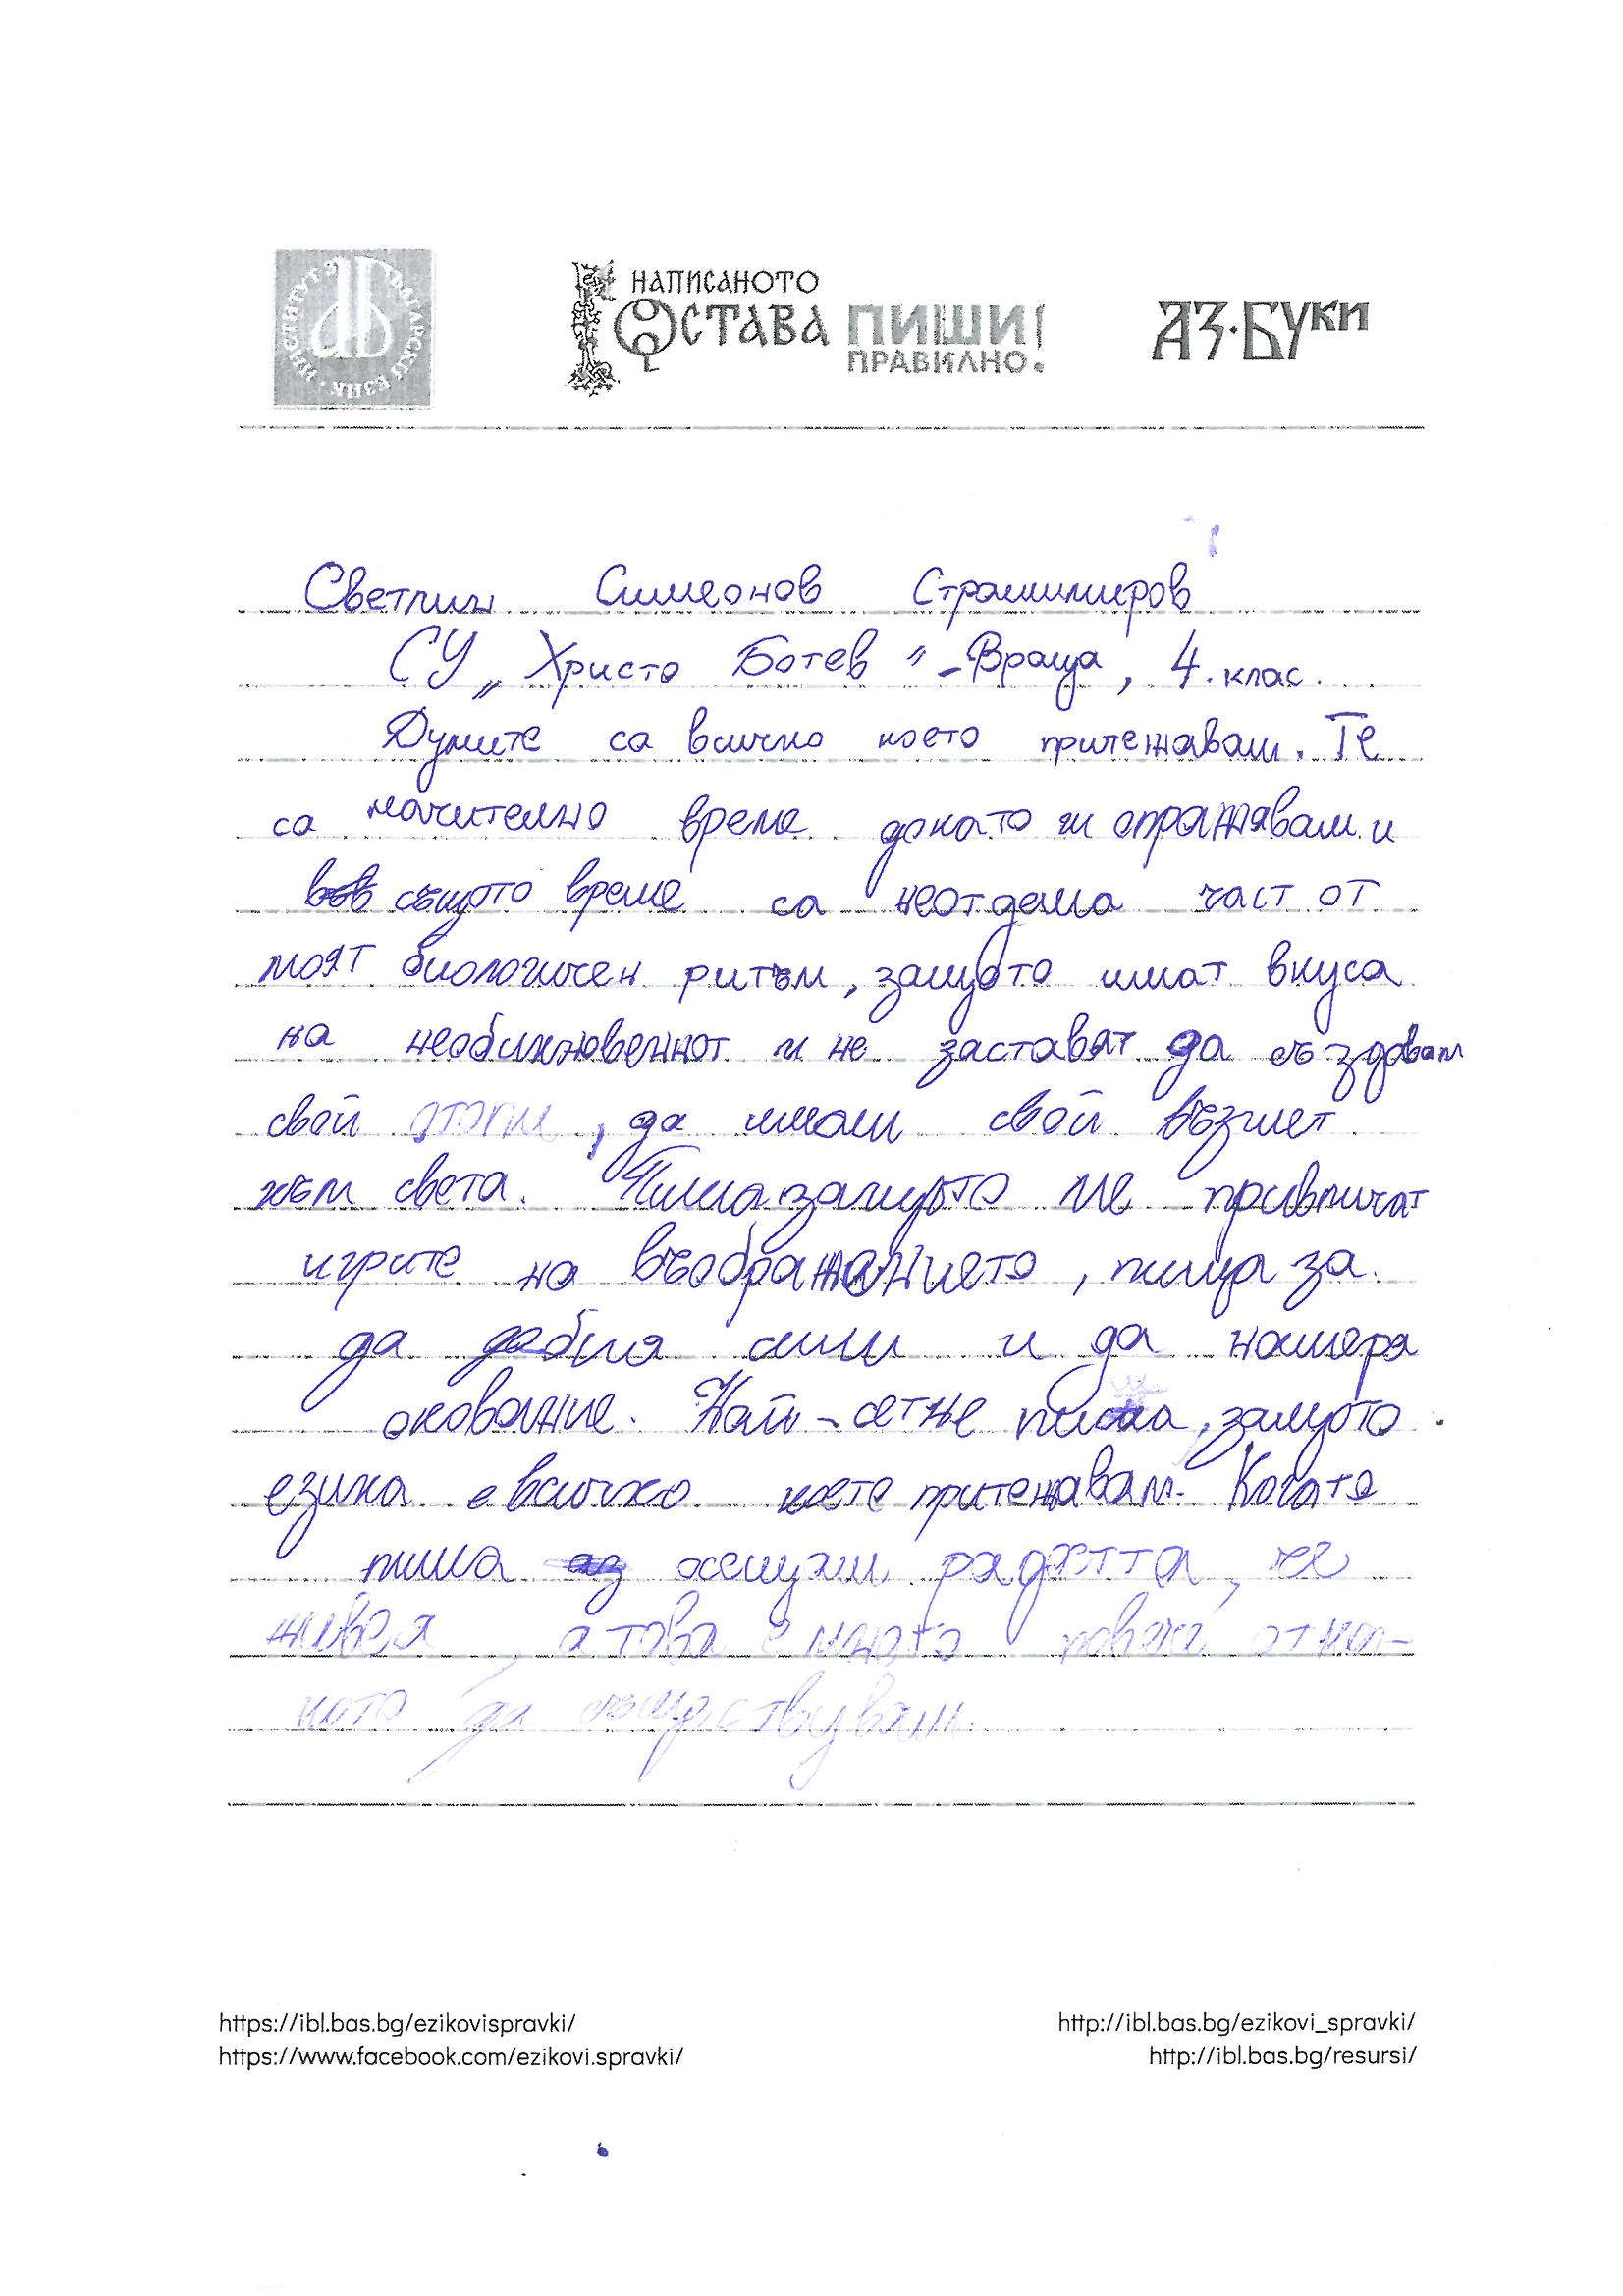 ИНСТИТУТ ЗА БЪЛГАРСКИ ЕЗИК
НАПИСАНОТО
ОСТАВА ПИШИ!
ПРАВИЛНО.
АЗ·БУКИ
Светлин Симеонов Страшимиров
СУ „Христо Ботев" - Враца, 4. клас.
Думите са всичко което притежавам. Те
са мъчително време докато ги опражнявам и
във същото време са неотдема част от
моят биологичен ритъм, защото имат вкуса
на необикновеннот и не заставят да създавам
свой, да имам свой възглет
към света. Пиша защото ме привличат
игрите на въображението, пиша за
да добия сили и да намеря
окование. Най-сетне пиша, защото
езика е всичко което притежавам. Когато
пиша аз осещам радостта, че
живея, а това е много повече откол-
кото да съществувам.
https://ibl.bas.bg/ezikovispravki/ http://ibl.bas.bg/ezikovi_spravki/
https://www.facebook.com/ezikovi.spravki/ http://ibl.bas.bg/resursi/